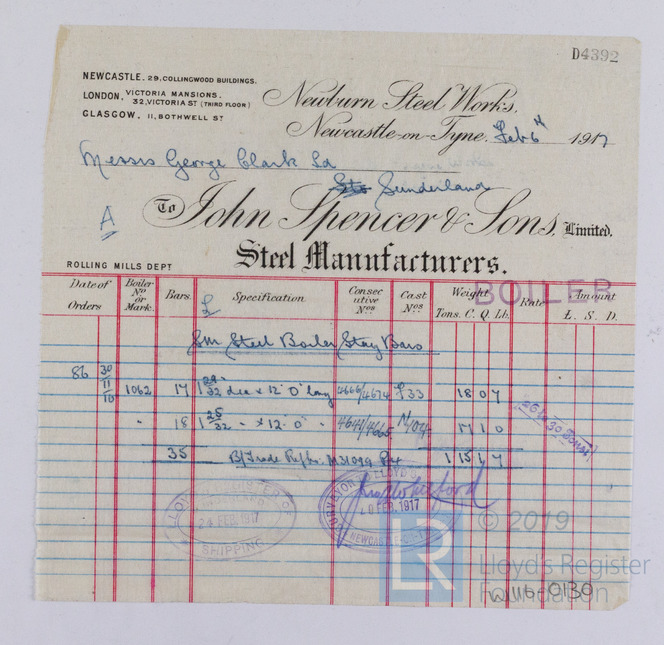 D4392
NEWCASTLE. 29, COLLINGWOOD BUILDINGS.
LONDON, VICTORIA MANSIONS.
32, VICTORIA ST (THIRD FLOOR)
GLASGOW, 11, BOTHWELL ST
Newburn Steel Works.
Newcastle-on-Tyne. Feb 6th 1917
Messrs George Clark Ld
Sunderland
A
To John Spencer & Sons, Limited.
Steel Manufacturers.
ROLLING MILLS DEPT
BOILER
Date of Orders Boiler No or Mark. Bars. Specification Consecutive Nos Cast Nos Weight Tons. C. Q. Lb. Rate Amount £. S. D.
SM Steel Boiler Stay Bars
86 30/11/16 1062 17 1 29/32 dia x 12' 0" long 4666/4674 33 18 0 7
" 18 1 25/32 " x 12' 0" " 17 1 0
26 to 30 Tons
35 B/Trade Ref No. 1 15 1 7
LLOYD'S REGISTER OF
24 FEB. 1917
SHIPPING
SURVEYOR LLOYD'S
10 FEB. 1917
NEWCASTLE-ON-T
LR
© 2019
Lloyd's Register
Foundation
W1116-0130